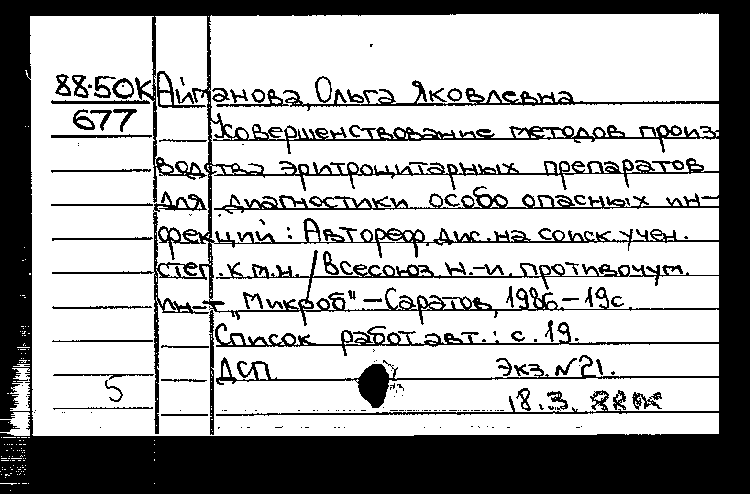 88-50К Айманова, Ольга Яковлевна
677
Совершенствование методов произ-
водства эритроцитарных препаратов
для диагностики особо опасных ин-
фекций: Автореф. дис. на соиск. учен.
степ. к.м.н. / Всесоюз. н.-и. противочум.
ин-т „Микроб" – Саратов, 1986. – 19с.
Список работ авт.: с. 19.
ДСП Экз. N21.
5
18.3.88